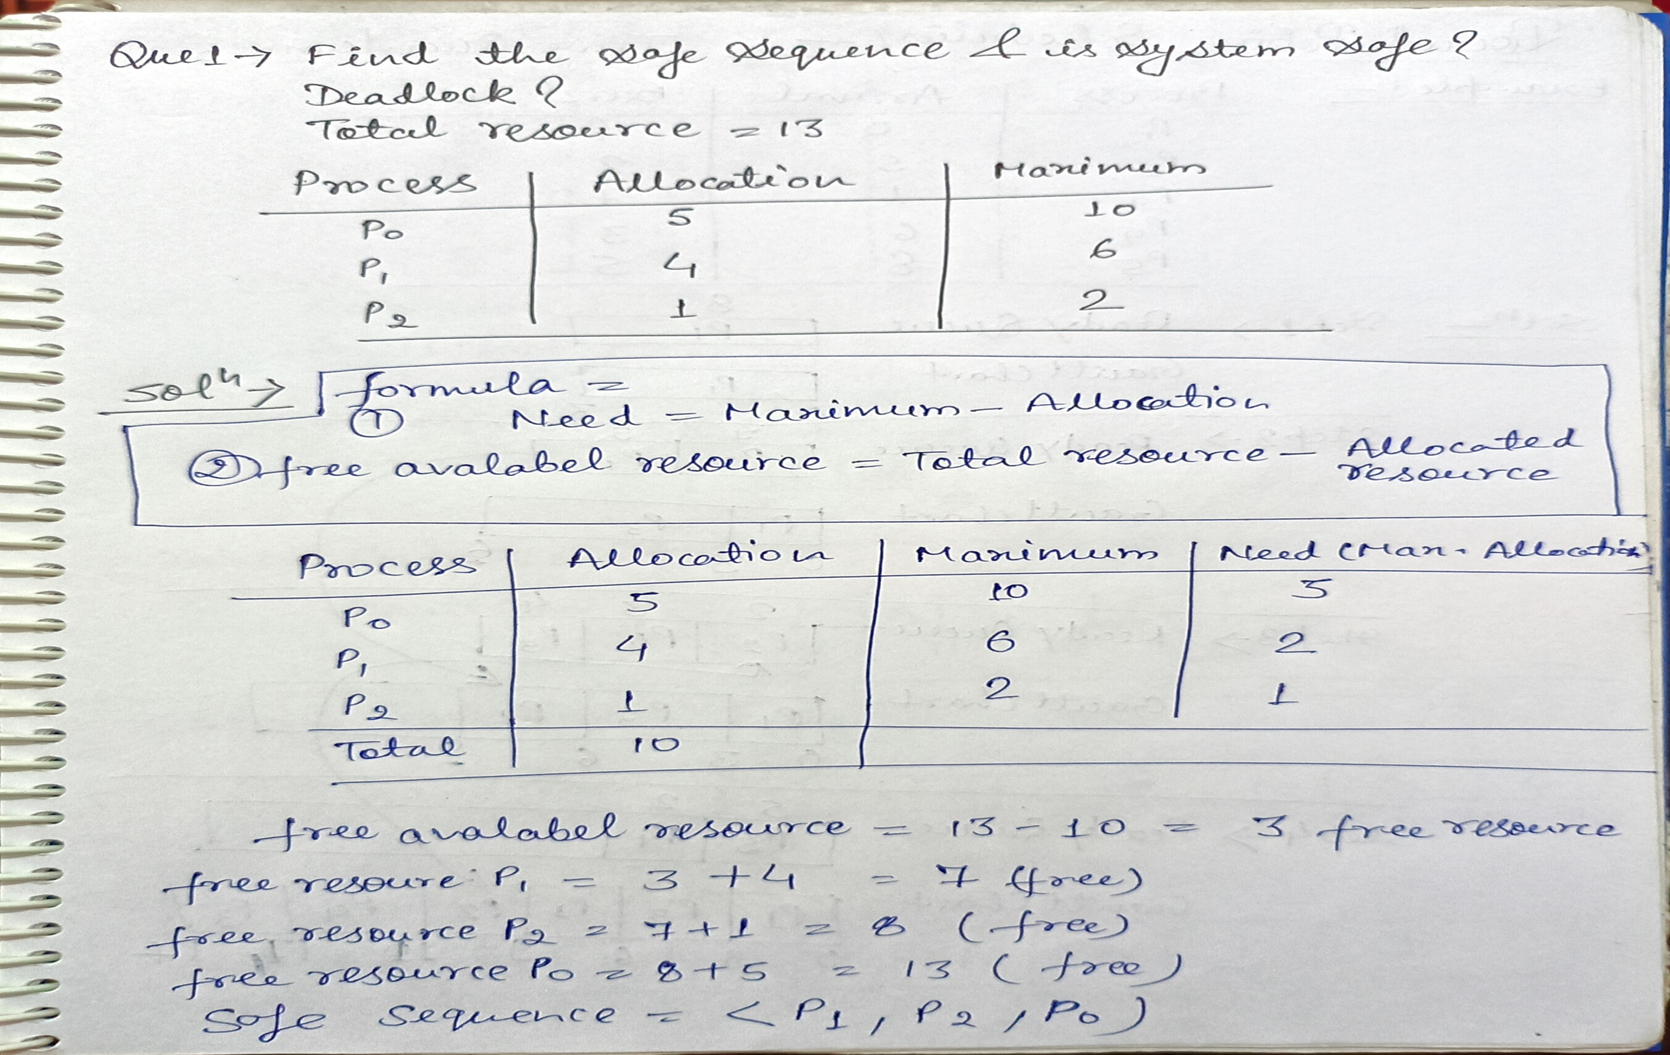 Que 1 → Find the safe sequence & is system safe?
Deadlock?
Total resource = 13
Process | Allocation | Maximum
P0 5 10
P1 4 6
P2 1 2
Solⁿ → formula =
① Need = Maximum - Allocation
② free avalabel resource = Total resource - Allocated resource
Process | Allocation | Maximum | Need (Max. Allocation)
P0 5 10 5
P1 4 6 2
P2 1 2 1
Total 10
free avalabel resource = 13 - 10 = 3 free resource
free resoure P1 = 3 + 4 = 7 (free)
free resource P2 = 7 + 1 = 8 (free)
free resource P0 = 8 + 5 = 13 (free)
Safe Sequence = < P1, P2, P0 )